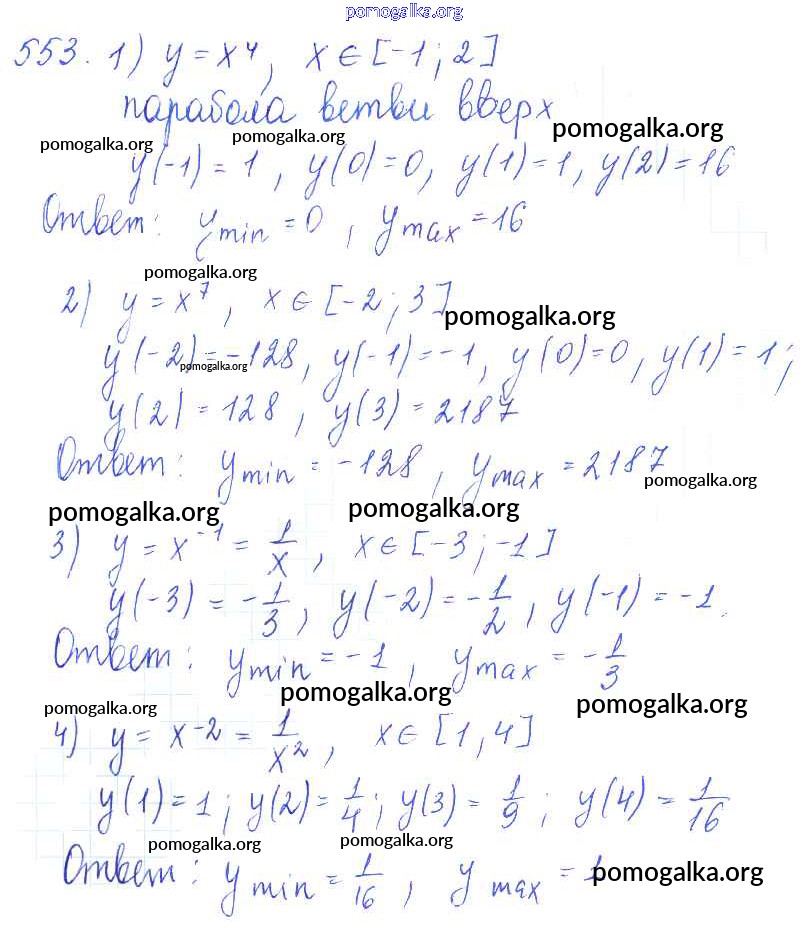 pomogalka.org
553. 1) y = x⁴, x ∈ [-1; 2]
парабола ветви вверх
pomogalka.org pomogalka.org pomogalka.org
y(-1) = 1, y(0) = 0, y(1) = 1, y(2) = 16
Ответ: y min = 0, y max = 16
pomogalka.org
2) y = x⁷, x ∈ [-2; 3]
pomogalka.org
y(-2) = -128, y(-1) = -1, y(0) = 0, y(1) = 1;
pomogalka.org
y(2) = 128, y(3) = 2187
Ответ: y min = -128, y max = 2187
pomogalka.org
pomogalka.org pomogalka.org
3) y = x⁻¹ = 1/x, x ∈ [-3; -1]
y(-3) = -1/3, y(-2) = -1/2, y(-1) = -1.
Ответ: y min = -1, y max = -1/3
pomogalka.org pomogalka.org pomogalka.org
4) y = x⁻² = 1/x², x ∈ [1, 4]
y(1) = 1; y(2) = 1/4; y(3) = 1/9; y(4) = 1/16
pomogalka.org pomogalka.org
Ответ: y min = 1/16, y max = 1
pomogalka.org